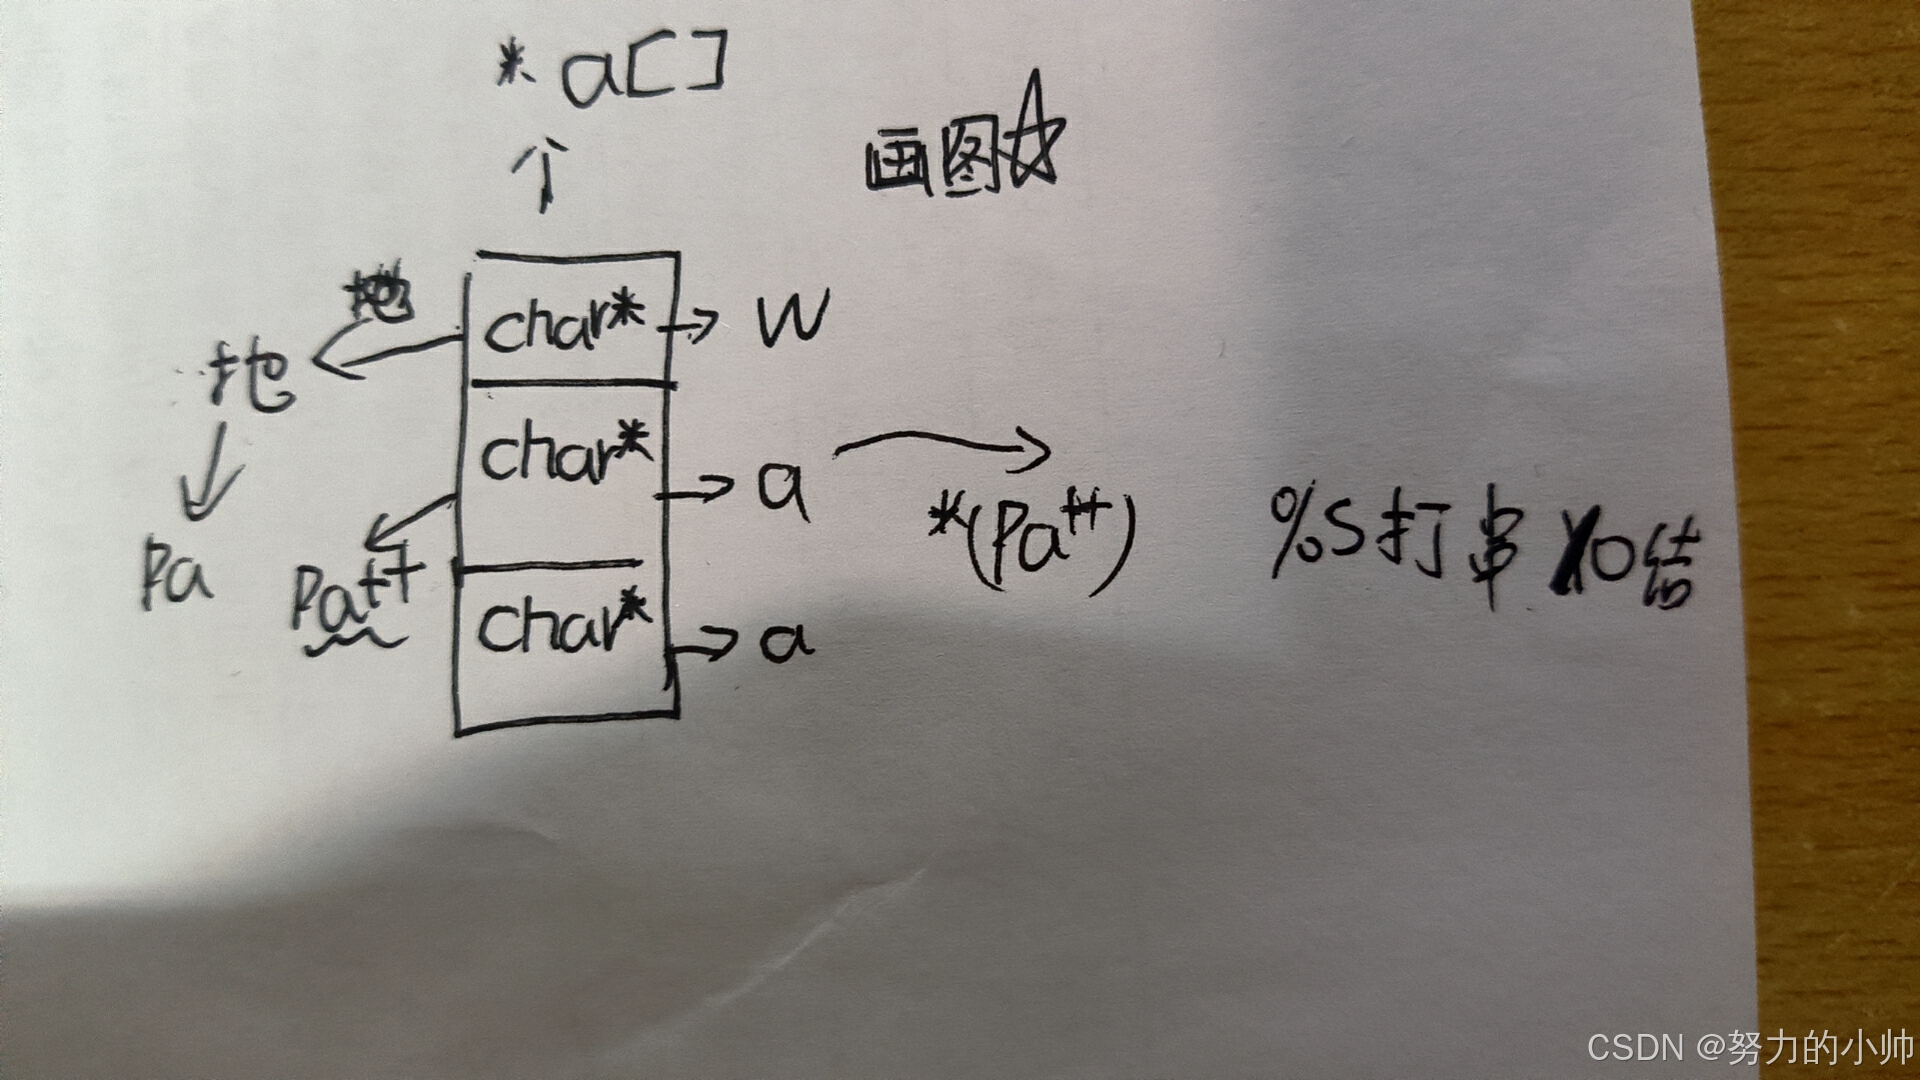 *a[]
个
画图☆
地
char* → w
地
char* → a
*(Pa++)
%s打串 \0结
Pa
Pa++
char* → a
CSDN @努力的小帅